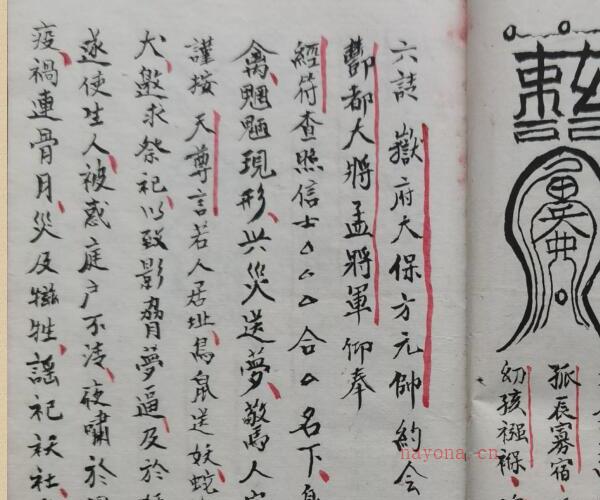 孤辰寡宿、
幼孩襁褓、
六請 嶽府大保方元帥約会
酆都大將孟將軍仰奉
經符查照信士△△△合△名下、
禽、魍魎現形、兴災送夢、驚人
謹按 天尊言若人居址、鳥鼠送妖蛇
犬、邀求祭祀、以致影脅夢逼、及於
遂使生人、被惑庭户不清、夜嘯於
疫、禍連骨月、災及犧牲、謡祀祅社、
nayona.cn